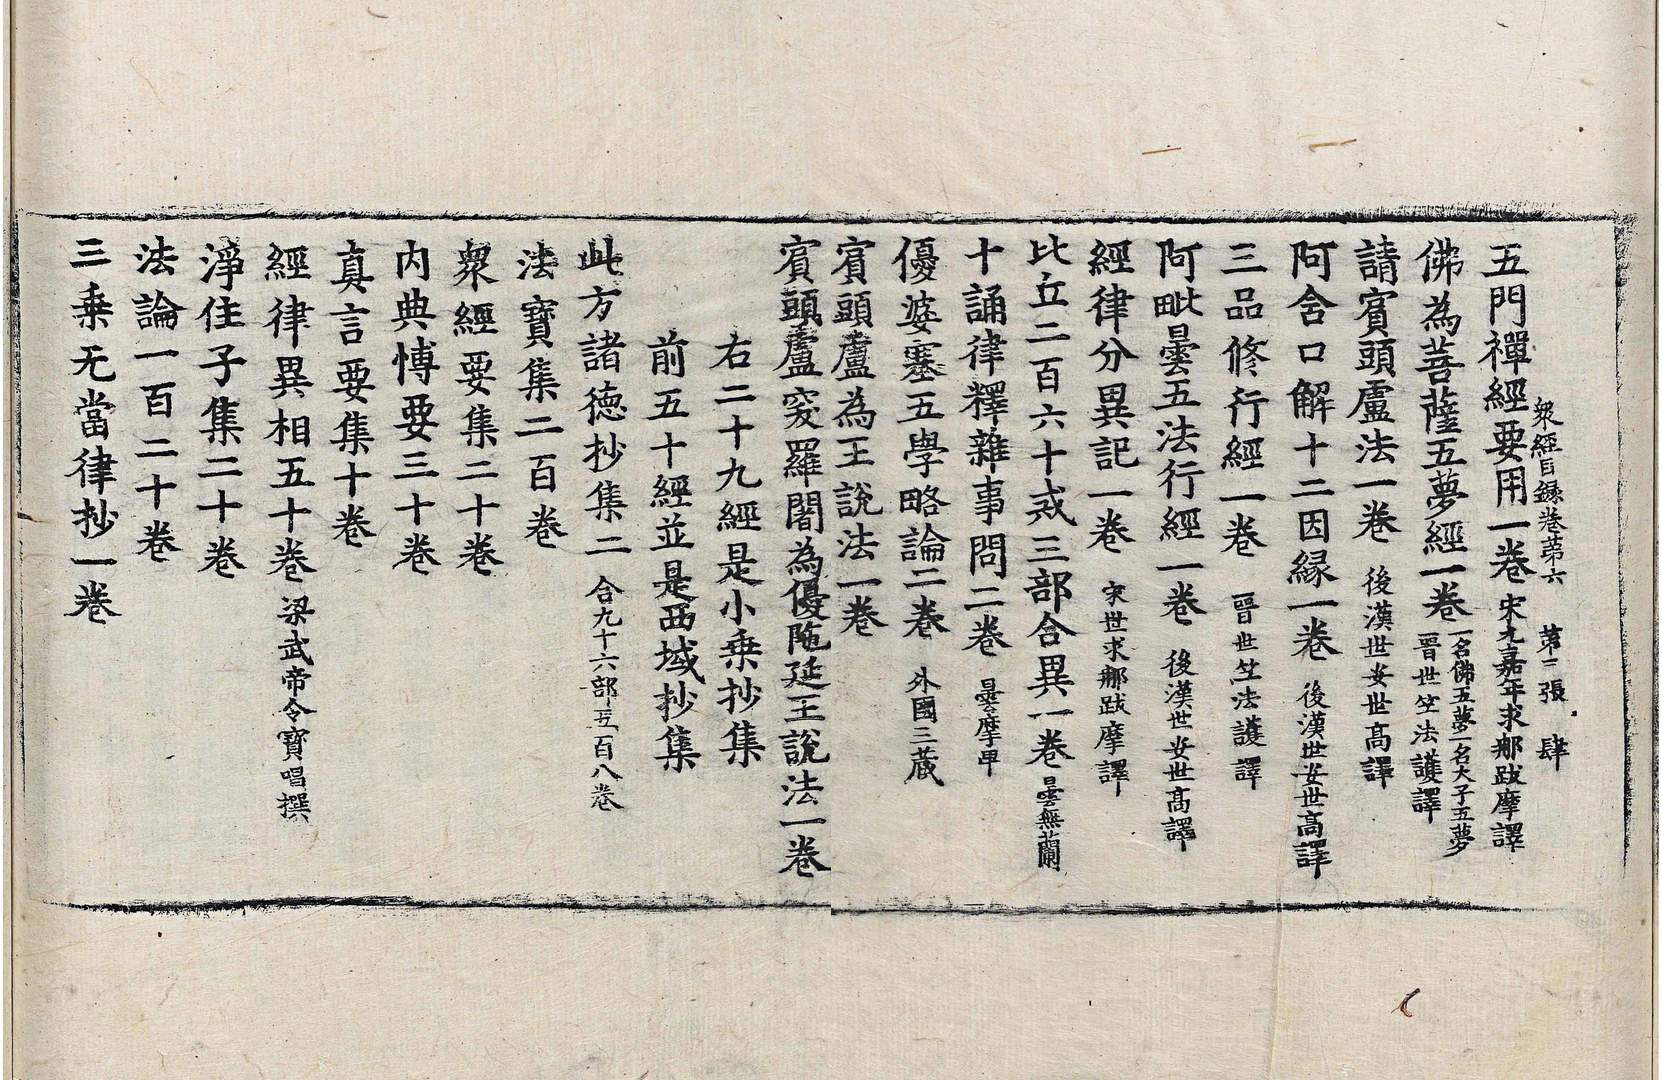 衆經目錄卷苐六 第二張 肆
五門禪經要用一卷 宋元嘉年求那跋摩譯
佛為菩薩五夢經一卷 一名佛五夢一名太子五夢
晉世竺法護譯
請賓頭盧法一卷 後漢世安世高譯
阿含口解十二因緣一卷 後漢世安世高譯
三品修行經一卷 晉世竺法護譯
阿毗曇五法行經一卷 後漢世安世高譯
經律分異記一卷 宋世求那跋摩譯
比丘二百六十戒三部合異一卷 曇無蘭
十誦律釋雜事問二卷 曇摩
優婆塞五學略論二卷 外國三藏
賓頭盧為王說法一卷
賓頭盧突羅闍為優陁延王說法一卷
右二十九經是小乗抄集
前五十經並是西域抄集
此方諸德抄集二 合九十六部五百八卷
法寶集二百卷
衆經要集二十卷
内典博要三十卷
真言要集十卷
經律異相五十卷 梁武帝令寶唱撰
淨住子集二十卷
法論一百二十卷
三乗无當律抄一卷